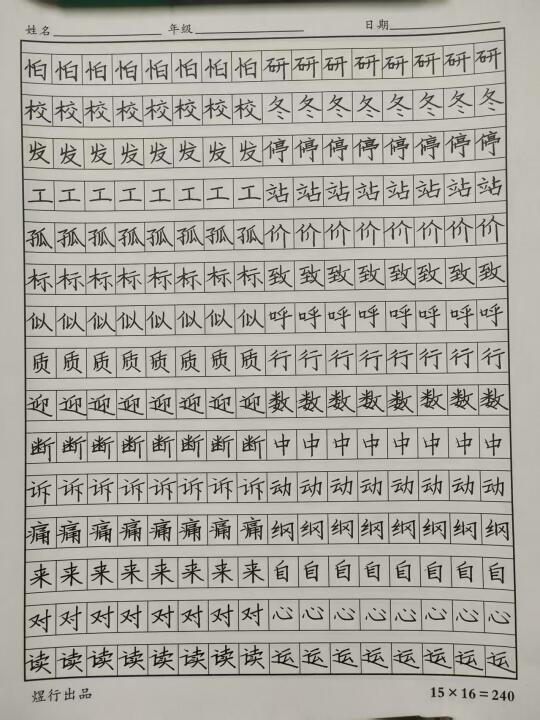 姓名 年级 日期
怕怕怕怕怕怕怕怕研研研研研研研研
校校校校校校校校冬冬冬冬冬冬冬冬
发发发发发发发发停停停停停停停停
工工工工工工工工站站站站站站站站
孤孤孤孤孤孤孤孤价价价价价价价价
标标标标标标标标致致致致致致致致
似似似似似似似似呼呼呼呼呼呼呼呼
质质质质质质质质行行行行行行行行
迎迎迎迎迎迎迎迎数数数数数数数数
断断断断断断断断中中中中中中中中
诉诉诉诉诉诉诉诉动动动动动动动动
痛痛痛痛痛痛痛痛纲纲纲纲纲纲纲纲
来来来来来来来来自自自自自自自自
对对对对对对对对心心心心心心心心
读读读读读读读读运运运运运运运运
煜行出品 15×16=240